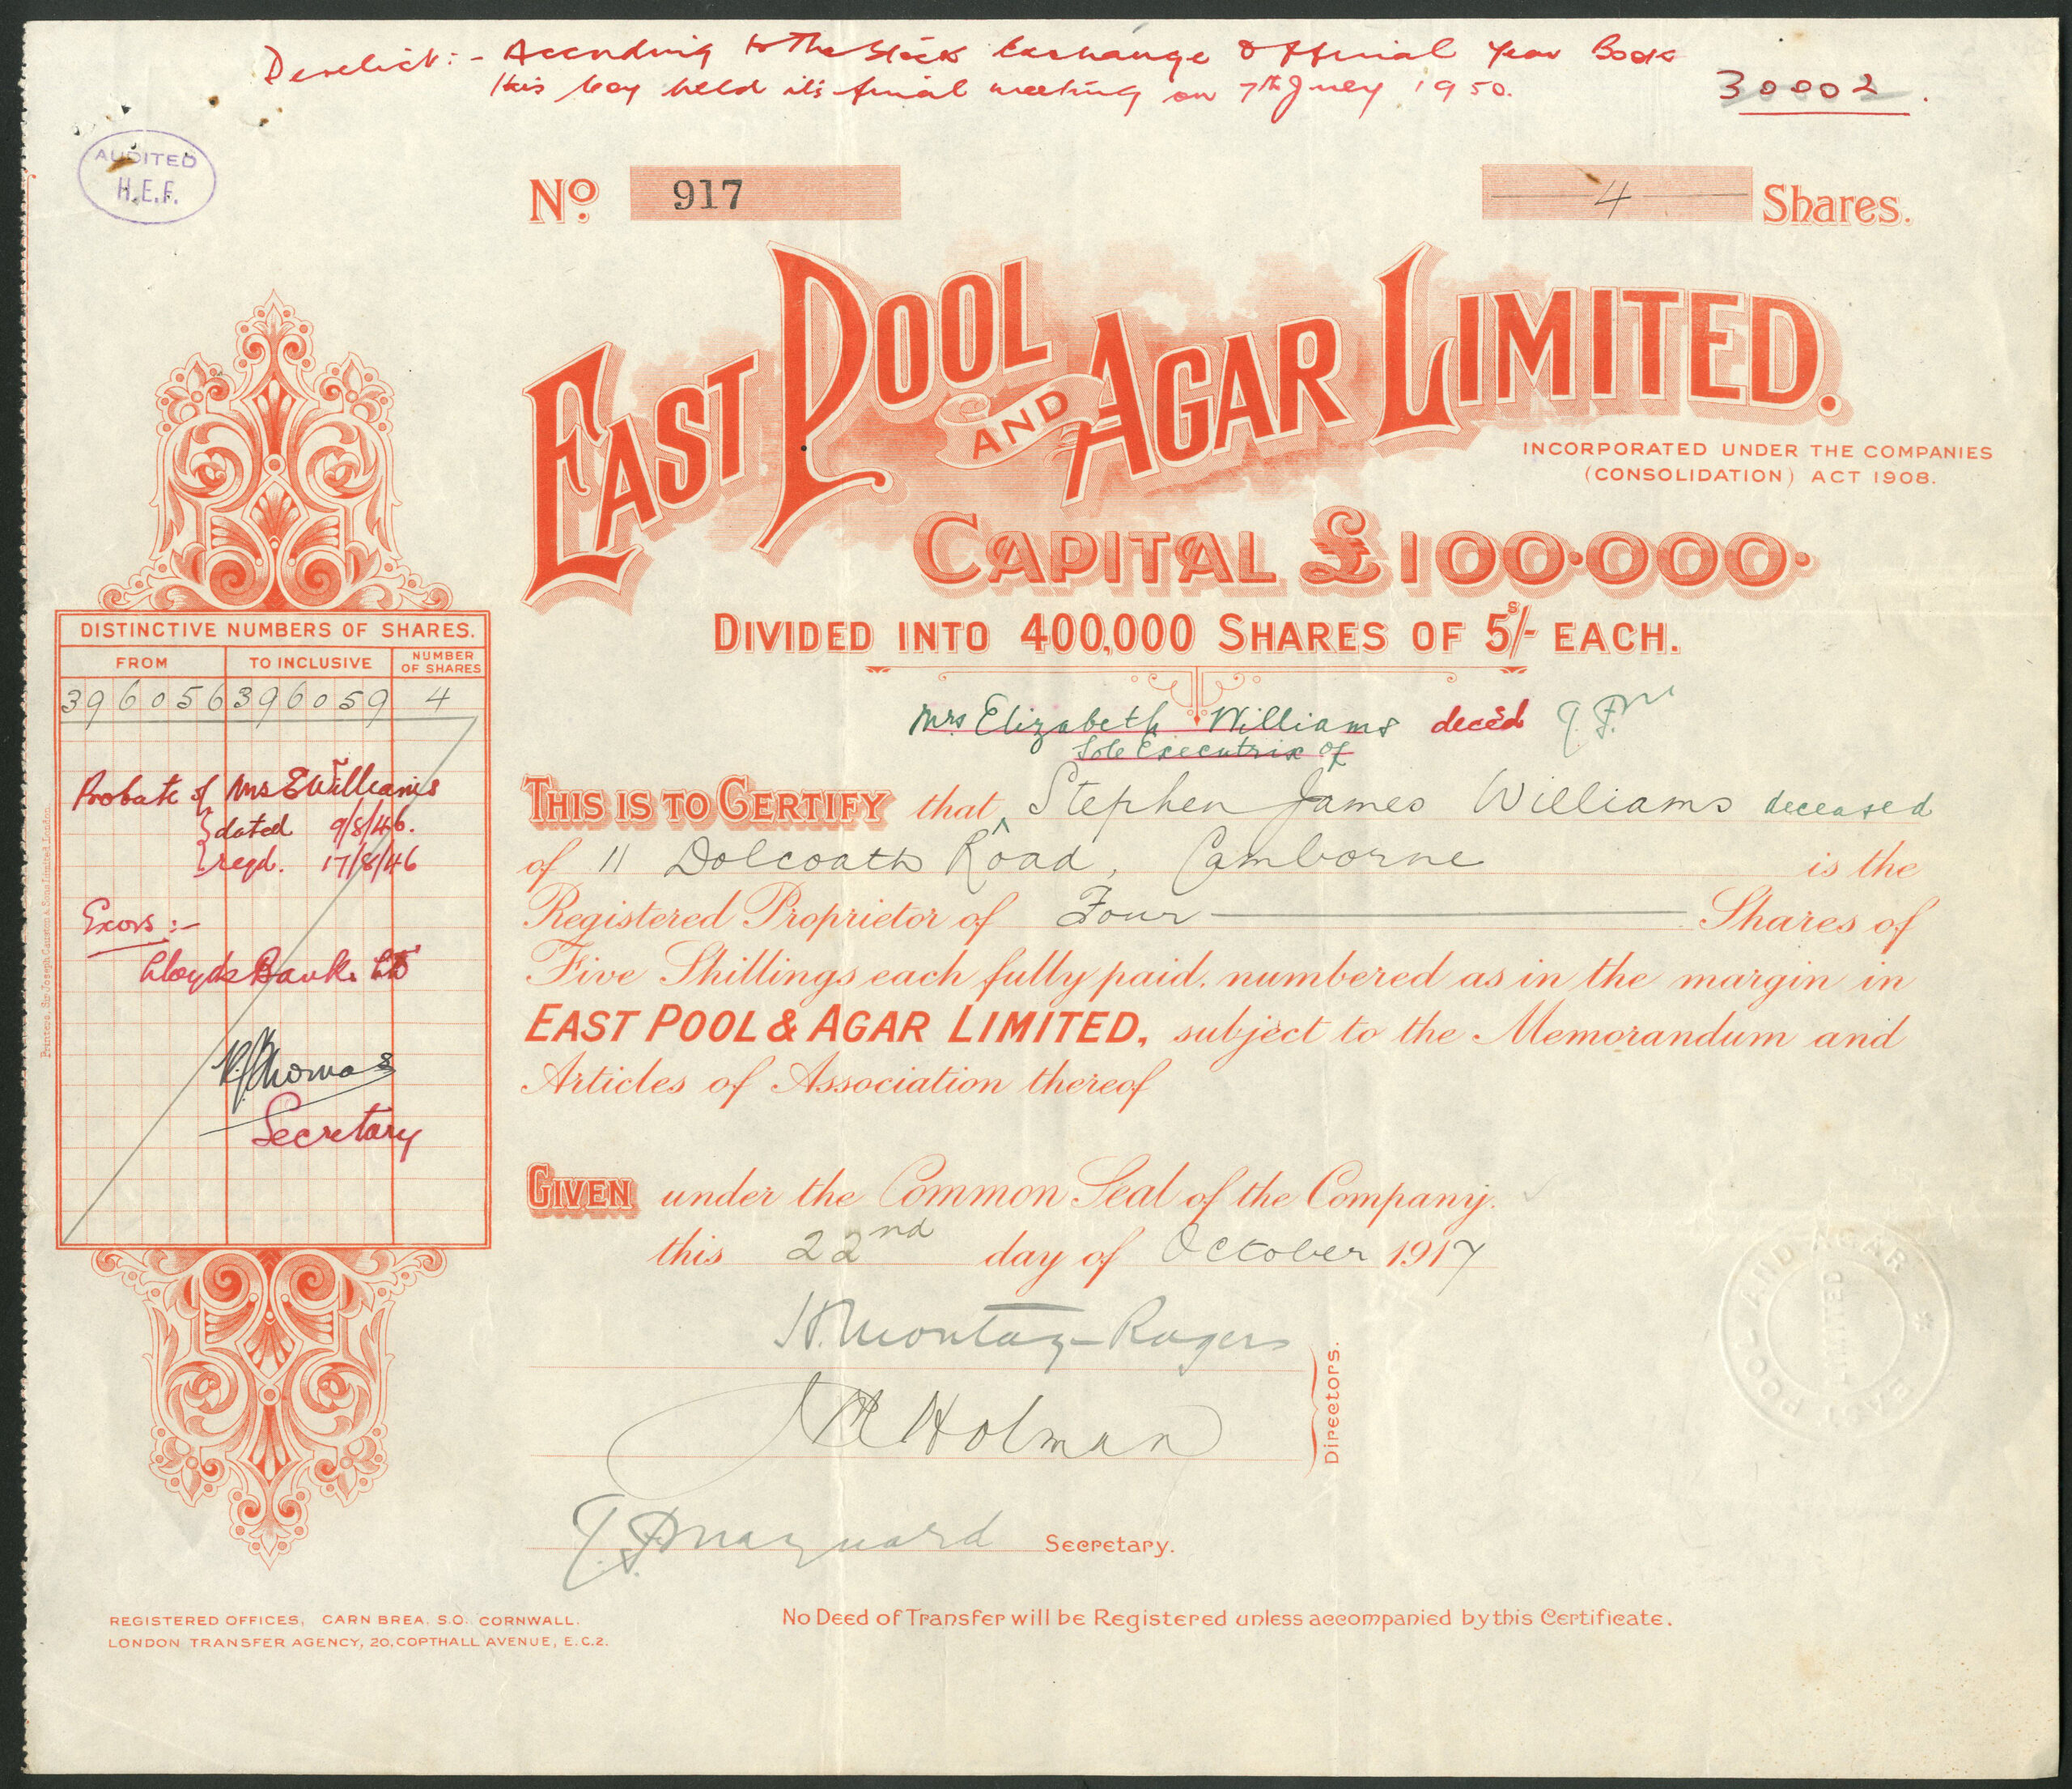 Derelict :- According to the Stock Exchange Official Year Book
this Coy held its final meeting on 7th July 1950.
30002.
AUDITED
H.E.F.
No. 917
4 Shares.
EAST POOL AND AGAR LIMITED.
INCORPORATED UNDER THE COMPANIES
(CONSOLIDATION) ACT 1908.
CAPITAL £100·000·
DIVIDED INTO 400,000 SHARES OF 5s/- EACH.
DISTINCTIVE NUMBERS OF SHARES.
FROM TO INCLUSIVE NUMBER OF SHARES
396056 396059 4
Probate of Mrs E Williams
dated 9/8/46.
regd. 17/8/46
Exors :-
Lloyds Bank Ltd
Thomas
Secretary
Printers, Sir Joseph Causton & Sons Limited London.
Mrs Elizabeth Williams decd
Sole Executrix of
THIS IS TO CERTIFY that Stephen James Williams deceased
of 11 Dolcoath Road, Camborne is the
Registered Proprietor of Four Shares of
Five Shillings each fully paid, numbered as in the margin in
EAST POOL & AGAR LIMITED, subject to the Memorandum and
Articles of Association thereof
GIVEN under the Common Seal of the Company.
this 22nd day of October 1917
H. Montag Rogers
J H Holman
Directors.
Maynard Secretary.
EAST POOL AND AGAR
LIMITED
REGISTERED OFFICES, CARN BREA. S.O. CORNWALL.
LONDON TRANSFER AGENCY, 20, COPTHALL AVENUE, E.C.2.
No Deed of Transfer will be Registered unless accompanied by this Certificate.